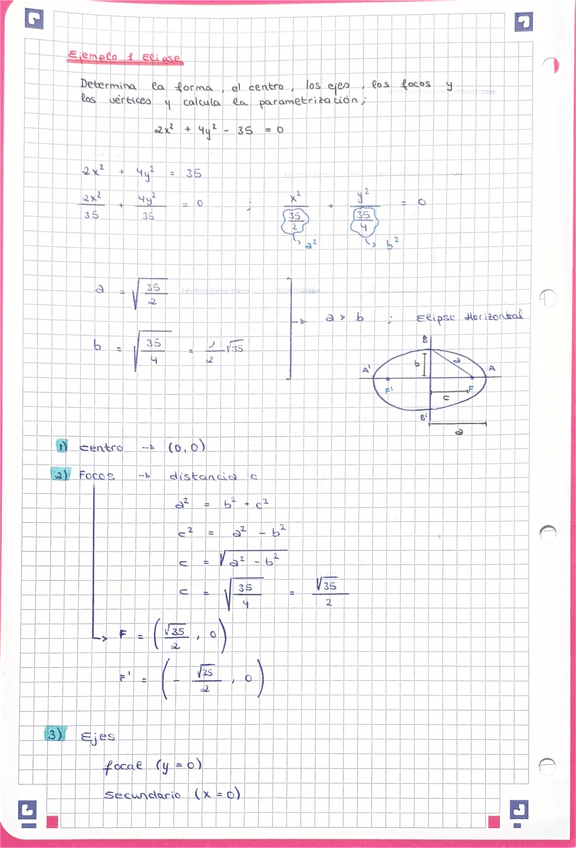 Ejemplo 1 Elipse
Determina la forma, el centro, los ejes, los focos y
los vértices y calcula la parametrización;
2x² + 4y² - 35 = 0
2x² + 4y² = 35
2x²/35 + 4y²/35 = 0 ; x²/(35/2) + y²/(35/4) = 0
a² b²
a = √(35/2)
→ a > b ; Elipse Horizontal
b = √(35/4) = 1/2 √35
B
A' b a A
F' F
c
B'
a
1) centro → (0,0)
2) Focos → distancia c
a² = b² + c²
c² = a² - b²
c = √(a² - b²)
c = √(35/4) = √35/2
F = (√35/2, 0)
F' = (-√35/2, 0)
3) Ejes
focal (y = 0)
secundario (x = 0)